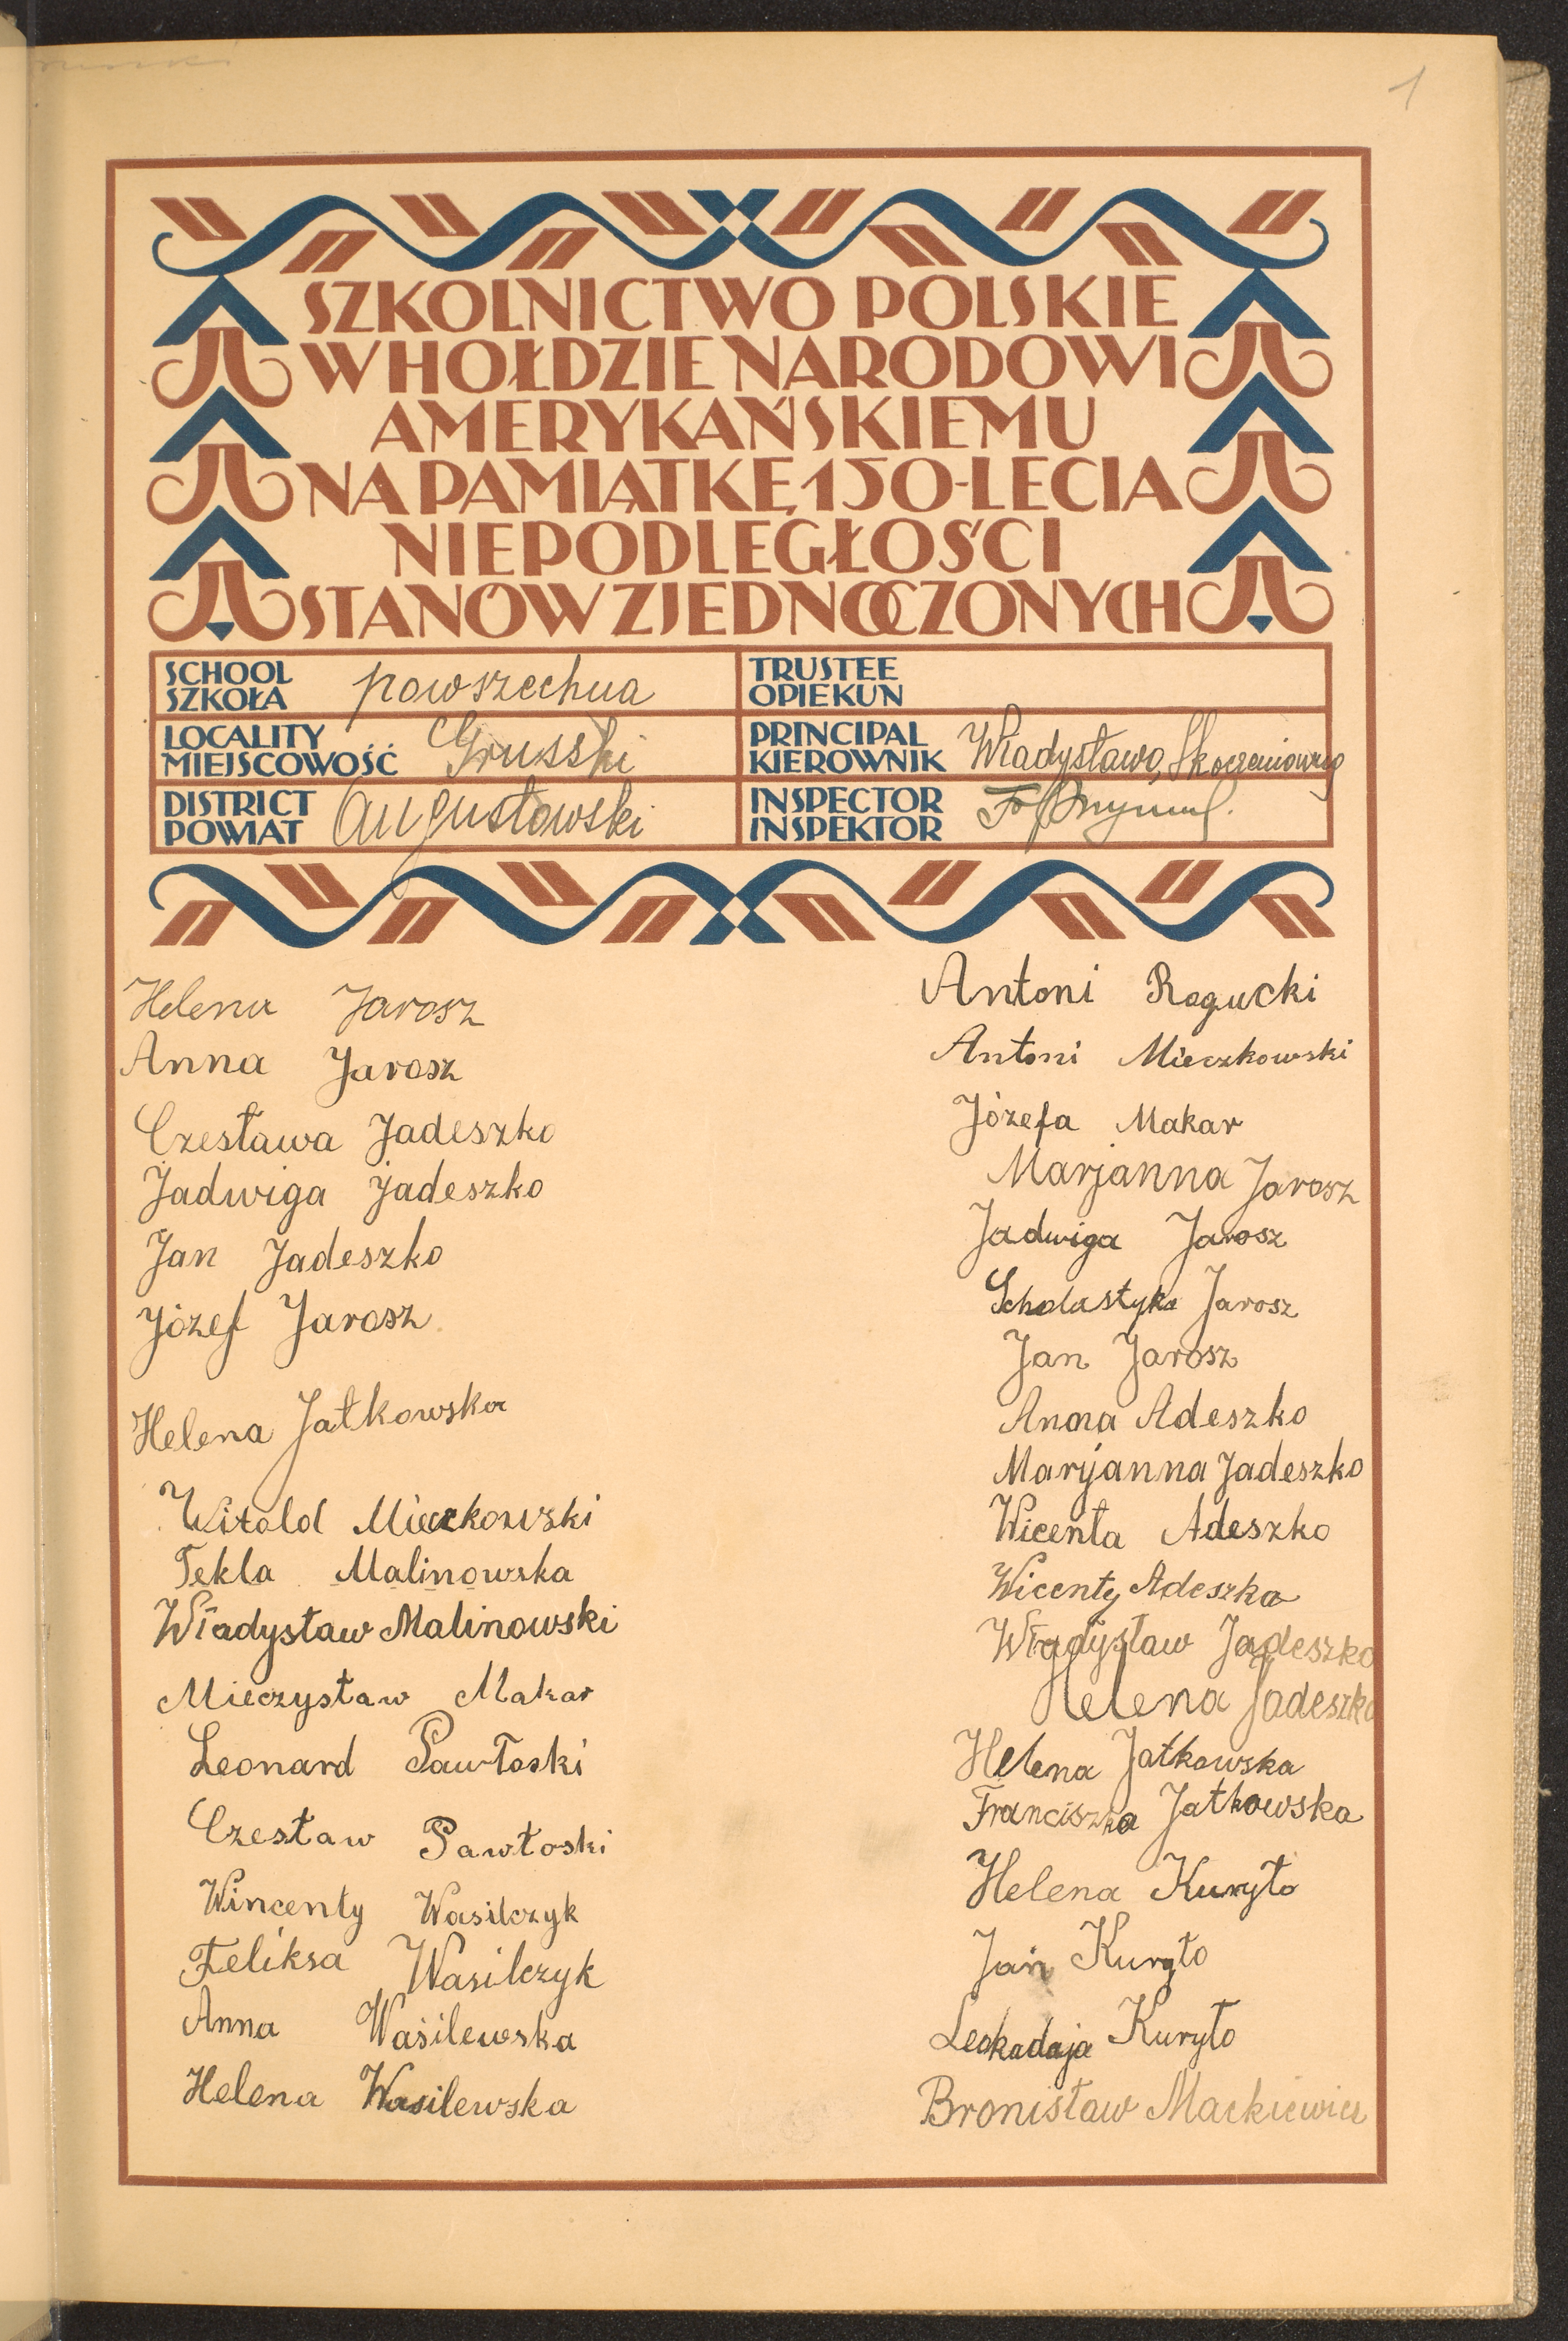 1
SZKOLNICTWO POLSKIE
W HOŁDZIE NARODOWI
AMERYKAŃSKIEMU
NA PAMIĄTKĘ 150-LECIA
NIEPODLEGŁOŚCI
STANÓW ZJEDNOCZONYCH
SCHOOL
SZKOŁA powszechna
TRUSTEE
OPIEKUN
LOCALITY
MIEJSCOWOŚĆ Gruszki
PRINCIPAL
KIEROWNIK Władysława
DISTRICT
POWIAT Augustowski
INSPECTOR
INSPEKTOR
Helena Jarosz
Anna Jarosz
Czesława Jadeszko
Jadwiga Jadeszko
Jan Jadeszko
Józef Jarosz
Helena Jatkowska
Witold Mieczkowski
Tekla Malinowska
Władysław Malinowski
Mieczysław Makar
Leonard Pawłoski
Czesław Pawłoski
Wincenty Wasilczyk
Feliksa Wasilczyk
Anna Wasilewska
Helena Wasilewska
Antoni Ragucki
Antoni Mieczkowski
Józefa Makar
Marjanna Jarosz
Jadwiga Jarosz
Scholastyka Jarosz
Jan Jarosz
Anna Adeszko
Maryanna Jadeszko
Wicenta Adeszko
Wicenty Adeszko
Władysław Jadeszko
Helena Jadeszko
Helena Jatkowska
Franciszka Jatkowska
Helena Kuryło
Jan Kuryło
Leokadaja Kuryło
Bronisław Mackiewicz